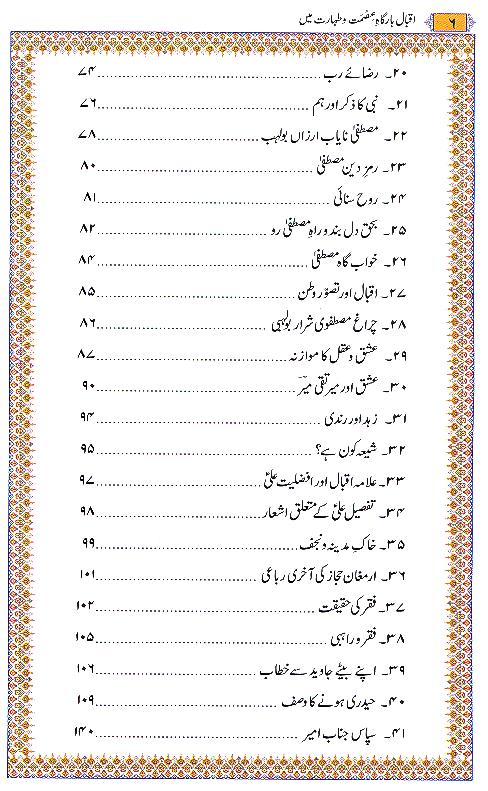 ٦ اقبال بارگاہِ عصمت و طہارت میں
۲۰۔ رضائے رب ............ ۷۴
۲۱۔ نبی کا ذکر اور ہم ............ ۷۶
۲۲۔ مصطفیٰ نایاب ارزاں بولہب ............ ۷۸
۲۳۔ رمزِ دین مصطفیٰ ............ ۸۰
۲۴۔ روح سنائی ............ ۸۱
۲۵۔ بحق دل بند و راہِ مصطفیٰ رو ............ ۸۲
۲۶۔ خواب گاہ مصطفیٰ ............ ۸۴
۲۷۔ اقبال اور تصوّر وطن ............ ۸۵
۲۸۔ چراغ مصطفوی شرار بولہبی ............ ۸۶
۲۹۔ عشق و عقل کا موازنہ ............ ۸۷
۳۰۔ عشق اور میر تقی میرؔ ............ ۹۰
۳۱۔ زہد اور رندی ............ ۹۴
۳۲۔ شیعہ کون ہے؟ ............ ۹۵
۳۳۔ علامہ اقبال اور افضلیت علیؑ ............ ۹۷
۳۴۔ تفصیل علیؑ کے متعلق اشعار ............ ۹۸
۳۵۔ خاکِ مدینہ و نجف ............ ۹۹
۳۶۔ ارمغان حجاز کی آخری رباعی ............ ۱۰۱
۳۷۔ فقر کی حقیقت ............ ۱۰۲
۳۸۔ فقر و راہبی ............ ۱۰۵
۳۹۔ اپنے بیٹے جاوید سے خطاب ............ ۱۰۶
۴۰۔ حیدری ہونے کا وصف ............ ۱۰۹
۴۱۔ سپاس جناب امیر ............ ۱۴۰